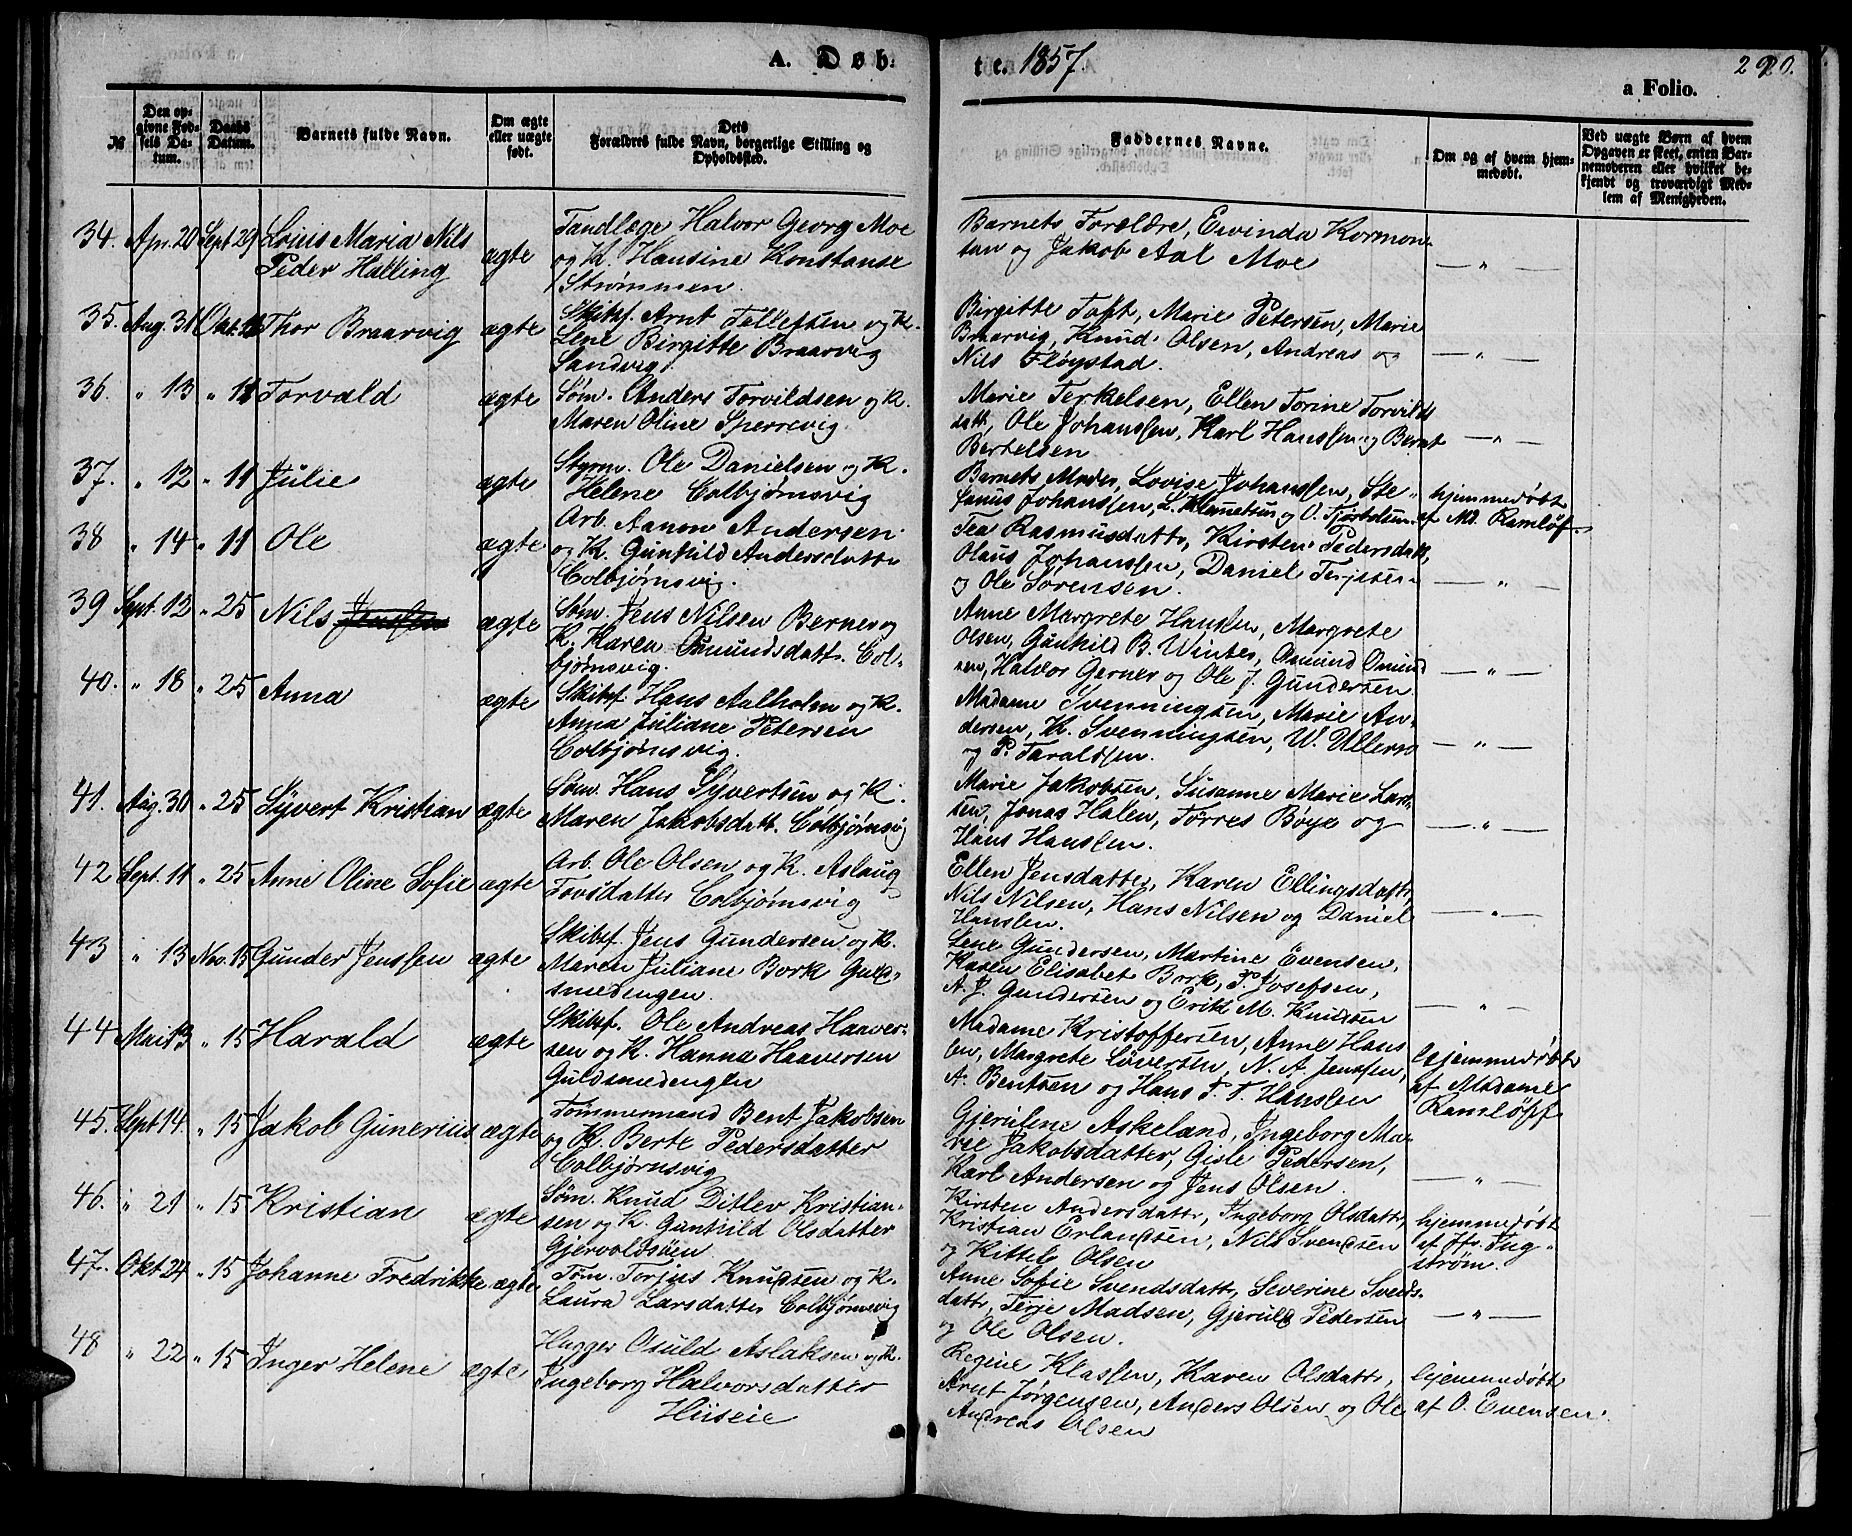 A. Døb-
te. 1857.
290.
a Folio.
№
Den op-
givne Fød-
sels Da-
tum.
Daabs
Datum.
Barnets fulde Navn.
Om ægte
eller uægte
født.
Dets
Forældres fulde Navn, borgerlige Stilling og
Opholdssted.
Faddernes Navne.
Om og af hvem hjem-
medøbt.
Ved uægte Børn af hvem
Opgaven er skeet, enten Bar-
nemoderen eller hvilket be-
kjendt og troværdigt Med-
lem af Menigheden.
34. Apr. 20 Sept 29 Loius Maria Nils
Peder Halling
ægte
Tandlæge Halvor Georg Moe
og K. Hansine Konstanse
Strømmen.
Barnets Forældre, Evinda Kormon-
tan og Jakob Aal Moe
— " —
35. Aug. 31 Okt. Thor Braarvig
ægte
Skibsf. Arnt Tellefsen og K.
Lene Birgitte Braarvig
Sandvig.
Birgitte Toft, Marie Petersen, Marie
Braarvig, Knud Olsen, Andreas og
Nils Fløystad.
— " —
36. " 13 " 11 Torvald
ægte
Søm. Anders Torvildsen og K.
Maren Oline Sperrevig.
Marie Terkelsen, Ellen Torine Torvilds
datt, Ole Johanssen, Karl Hanssen og Bernt
Bertelsen
— " —
37. " 12 " 11 Julie
ægte
Styrm. Ole Danielsen og K.
Helene Colbjørnsvig
Barnets Moder, Lovise Johanssen, Ste-
fanus Johanssen, L. Klemetsen og O. Tjøstelsen.
hjemmedøbt
af Md. Ramløf.
38 " 14 " 11 Ole
ægte
Arb. Aanon Andersen
og K. Gunhild Andersdatter
Colbjørnsvig.
Tea Rasmusdatter, Kirsten Pedersdatt,
Olaus Johanssen, Daniel Terjesen
og Ole Sørensen.
— " —
39 Sept. 12 " 25 Nils Jenssen
ægte
Søm. Jens Nilsen Berne og
K. Karen Omundsdatt. Col-
bjørnsvig.
Anne Margrete Hanssen, Margrete
Olsen, Gunhild B. Winter, Omund Omund
sen, Halvor Gerner og Ole J. Gundersen.
— " —
40. " 18 " 25 Anna
ægte
Skibsf. Hans Aalholm og K.
Anna Juliane Petersen
Colbjørnsvig.
Madame Svenningsen, Marie An-
dersen, K. Svenningsen, W. Ullern
og P. Taraldsen.
— " —
41. Aug. 30 " 25 Syvert Kristian
ægte
Søm. Hans Syvertsen og K.
Maren Jakobsdatt. Colbjørnsvig
Marie Jakobsen, Susanne Marie Lar-
sen, Jonas Halen, Torres Bøye og
Hans Hanssen.
— " —
42 Sept. 11 " 25 Anne Oline Sofie
ægte
Arb. Ole Olsen og K. Aslaug
Tovsdatter Colbjørnsvig
Ellen Jensdatter, Karen Ellingsdatt,
Nils Nilsen, Hans Nilsen og Daniel
Hanssen.
— " —
43 " 13 Nov. 15 Gunder Jenssen
ægte
Skibsf. Jens Gundersen og K.
Maren Juliane Bork Guld-
smedengen.
Lene Gundersen, Martine Evensen,
Karen Elisabet Bork, P. Josefsen,
A. J. Gundersen og Erik M. Knudsen
— " —
44 Mai 13 " 15 Harald
ægte
Skibsf. Ole Andreas Haaver-
sen og K. Hanna Haaversen
Guldsmedengen
Madame Kristoffersen, Anne Hans
sen, Margrete Løversen, N. A. Jenssen,
A. Bentsen og Hans P. T. Hanssen
hjemmedøbt
af Madame
Ramløff
45. Sept 14 " 15 Jakob Gunerius
ægte
Tømmermand Bent Jakobsen
og K. Berte Pedersdatter
Colbjørnsvig
Gjerulene Askeland, Ingeborg Ma-
rie Jakobsdatter, Gisle Pedersen,
Karl Andersen og Jens Olsen.
— " —
46. " 21 " 15 Kristian
ægte
Søm. Knud Ditlev Kristian-
sen og K. Gunhild Olsdatter
Gjervoldsøen
Kirsten Andersdatt, Ingeborg Olsdatt,
Kristian Erlandsen, Nils Svendsen
og Kittel Olsen
hjemmedøbt
af Jfr. Tug-
strøm.
47. Okt. 24 " 15 Johanne Fredrikke
ægte
Tøm. Torjus Knudsen og K.
Laura Larsdatter Colbjørnsvig
Anne Sofie Svendsdatt, Severine Svends
datt, Terje Madsen, Gjeruld Pedersen
og Ole Olsen.
— " —
48 " 22 " 15 Inger Helene
ægte
Hugger Osuld Aslaksen og K.
Ingeborg Halvorsdatter
Huseie
Regine Klassen, Karen Olsdatt,
Arnt Jørgensen, Anders Olsen og Ole
Andreas Olsen
hjemmedøbt
af O. Evensen.